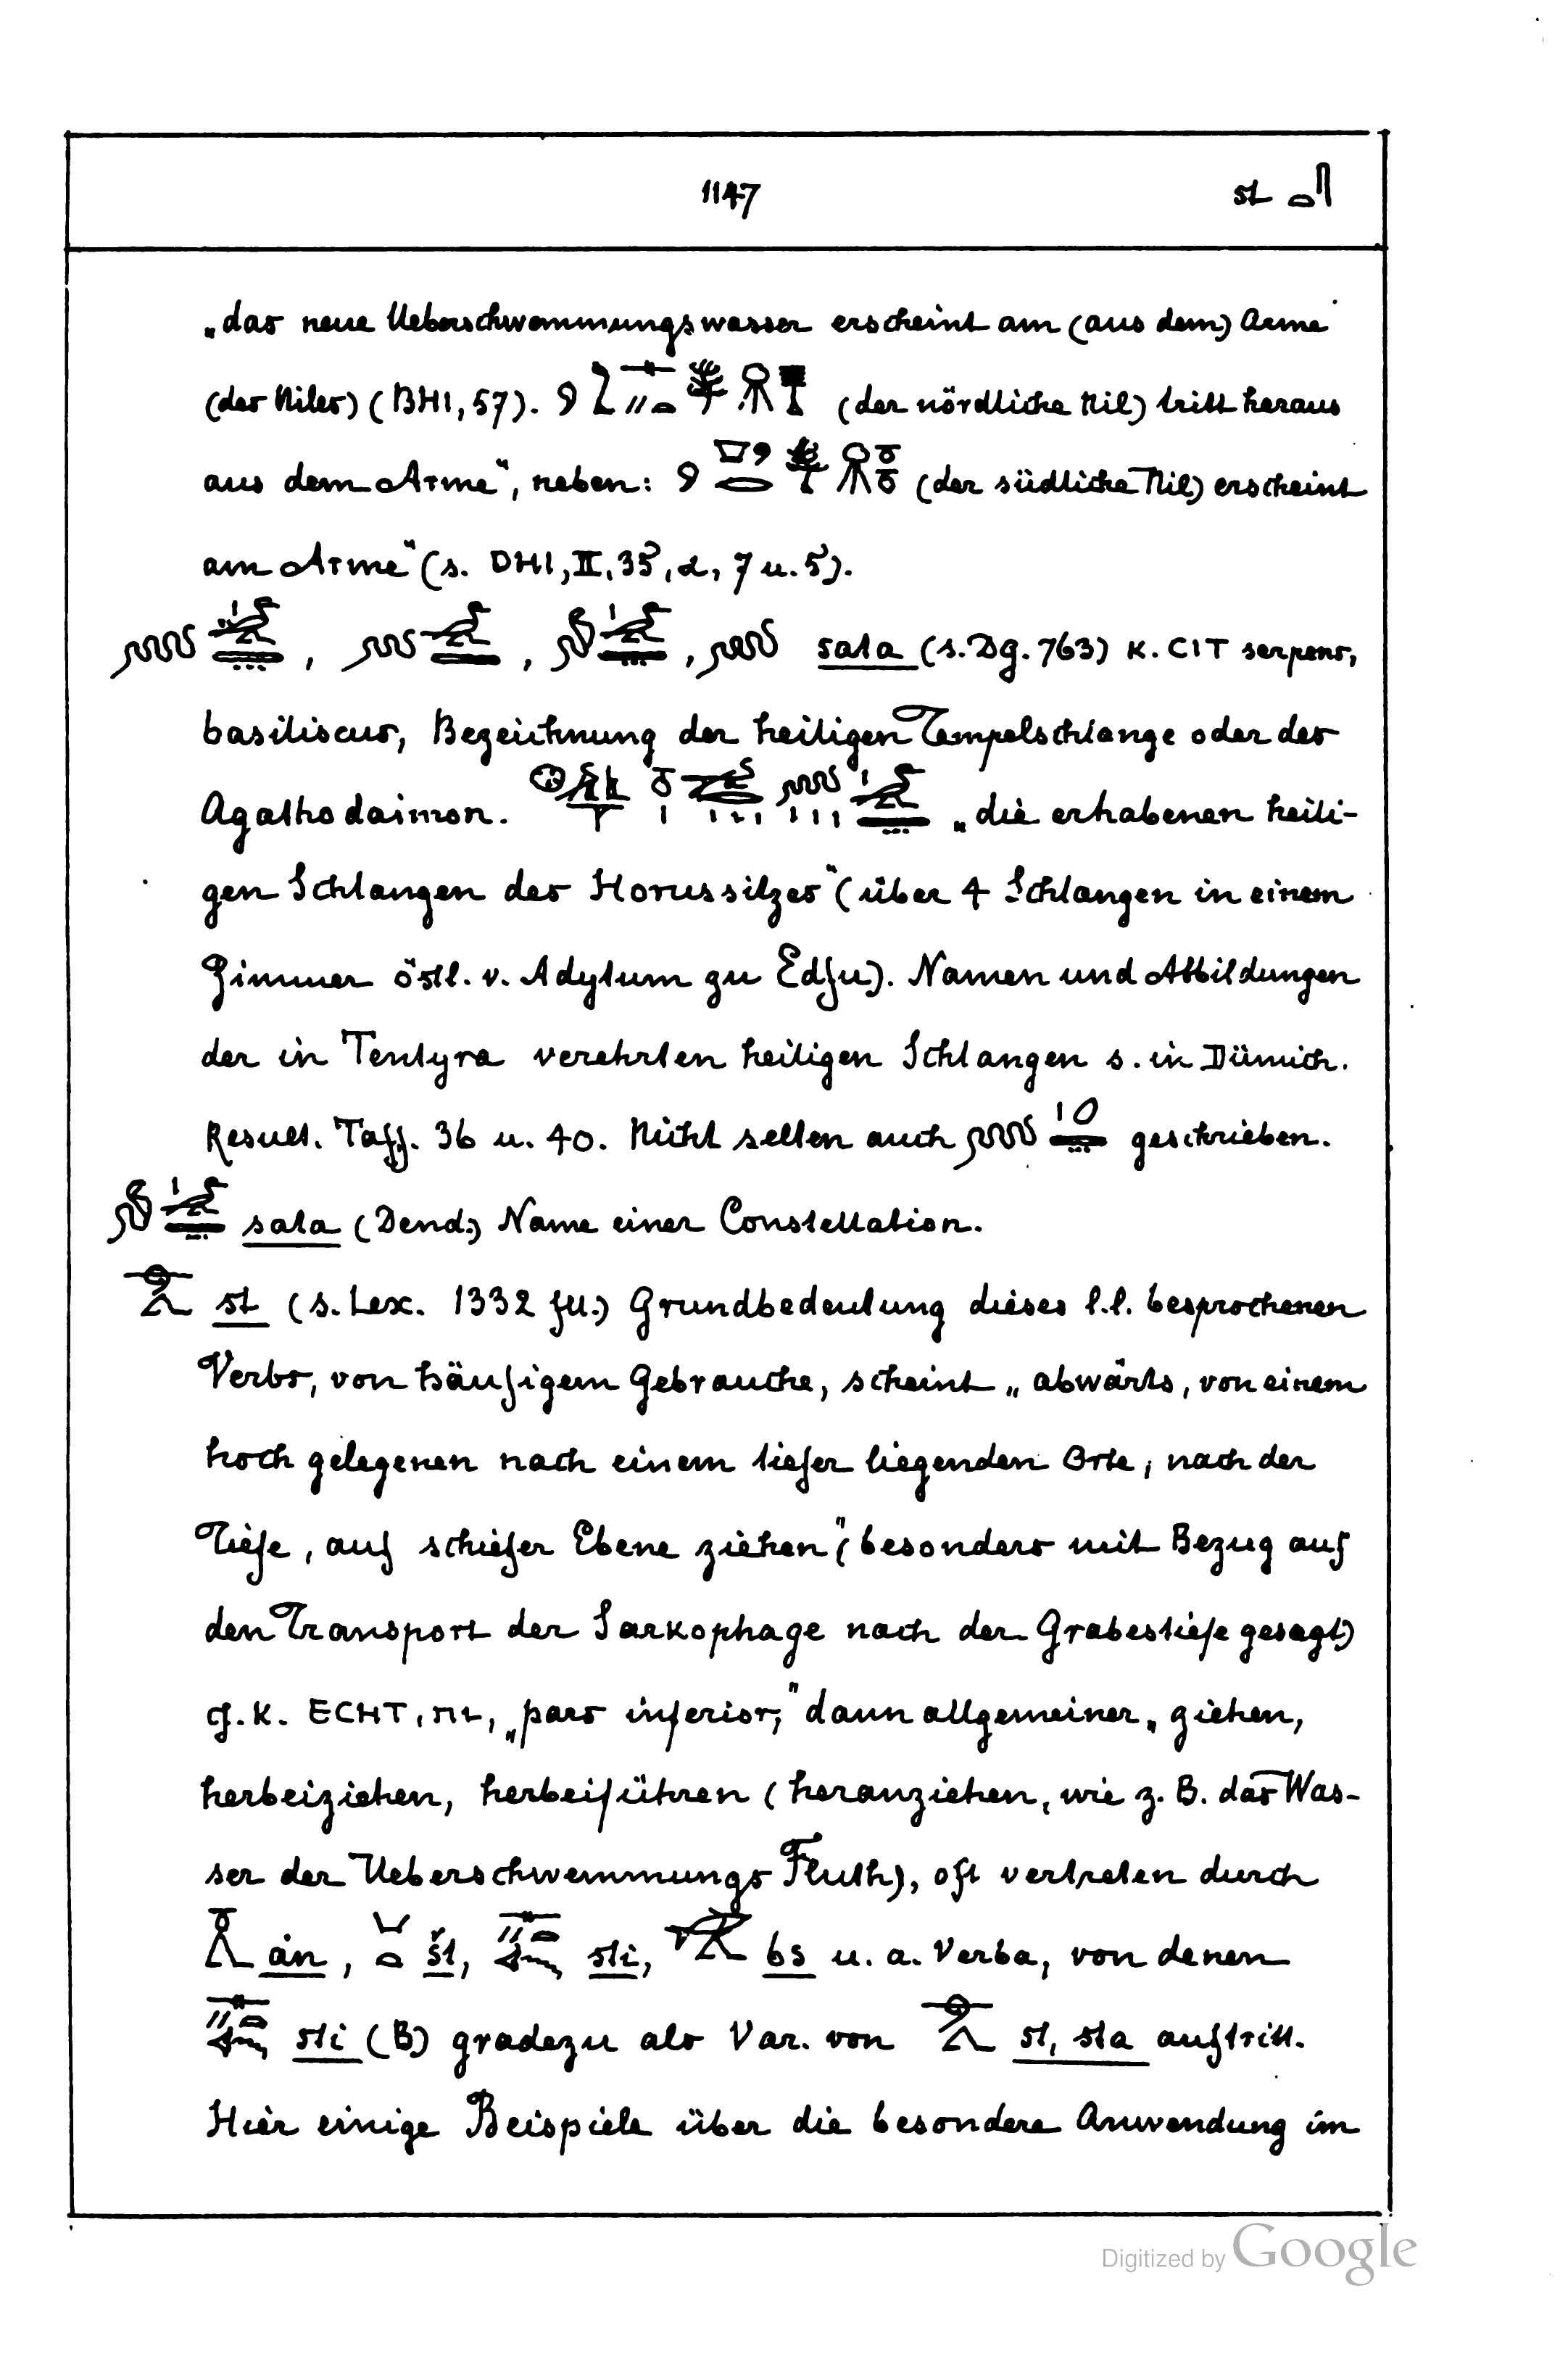 1147 st
„das neue Ueberschwemmungswasser erscheint am (aus dem) Arme
(des Niles) (BHI, 57). (der nördliche Nil) tritt heraus
aus dem Arme", neben: (der südliche Nil) erscheint
am Arme" (s. DHI, II, 35, d, 7 u. 5).
sata (s. Dg. 763) K. CIT serpens,
basiliscus, Bezeichnung der heiligen Tempelschlange oder des
Agathodaimon. „die erhabenen heili-
gen Schlangen des Horussitzes" (über 4 Schlangen in einem
Zimmer östl. v. Adytum zu Edfu). Namen und Abbildungen
der in Tentyra verehrten heiligen Schlangen s. in Dümich.
Result. Taff. 36 u. 40. Nicht selten auch geschrieben.
sata (Dend.) Name einer Constellation.
st (s. Lex. 1332 fll.) Grundbedeutung dieses l.l. besprochenen
Verbs, von häufigem Gebrauche, scheint „abwärts, von einem
hoch gelegenen nach einem tiefer liegenden Orte, nach der
Tiefe, auf schiefer Ebene ziehen" (besonders mit Bezug auf
den Transport der Sarkophage nach der Grabestiefe gesagt)
cf. K. ECHT, ΠΙ, „pars inferior," dann allgemeiner „ziehen,
herbeiziehen, herbeiführen (heranziehen, wie z. B. das Was-
ser der Ueberschwemmungs Fluth), oft vertreten durch
ȧn, št, sti, bs u. a. Verba, von denen
sti (B) gradezu als Var. von st, sta auftritt.
Hier einige Beispiele über die besondere Anwendung im
Digitized by Google